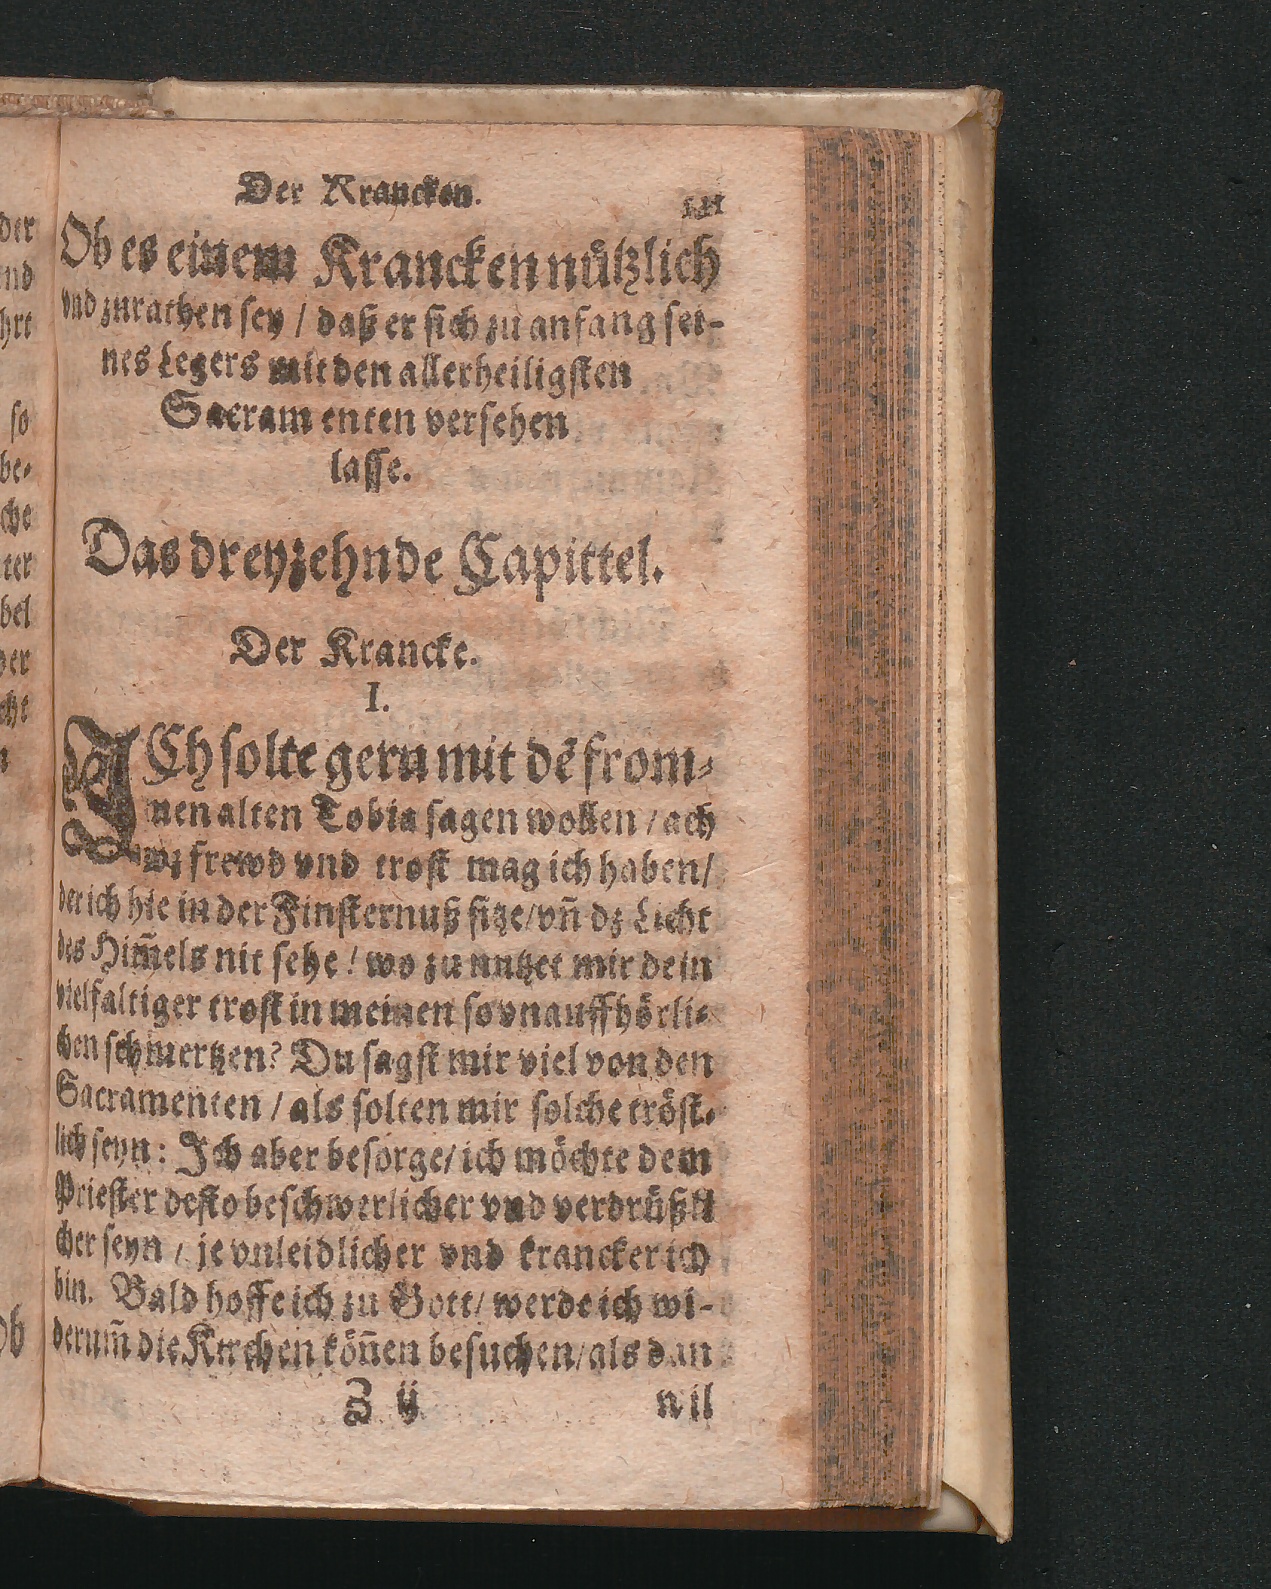 Der Krancken.
Ob es einem Krancken nützlich
vnd zurathen sey / daß er sich zu anfang sei-
nes Legers mit den allerheiligsten
Sacramenten versehen
lasse.
Das dreyzehnde Capittel.
Der Krancke.
I.
ICh solte gern mit dē from-
men alten Tobia sagen wollen / ach
wz frewd vnd trost mag ich haben /
der ich hie in der Finsternuß sitze / vñ dz Licht
des Him̃els nit sehe ! wo zu nutzet mir dein
vielfaltiger trost in meinen so vnauffhörli-
chen schmertzen? Du sagst mir viel von den
Sacramenten / als solten mir solche tröst-
lich seyn : Ich aber besorge / ich möchte dem
Priester desto beschwerlicher vnd verdrüßli
cher seyn / je vnleidlicher vnd krancker ich
bin. Bald hoffe ich zu Gott / werde ich wi-
derum̃ die Kirchen kön̄en besuchen / als dan
Z ij wil
der
nd
hrt
so
be-
che
ter
bel
der
cht
n
Ob